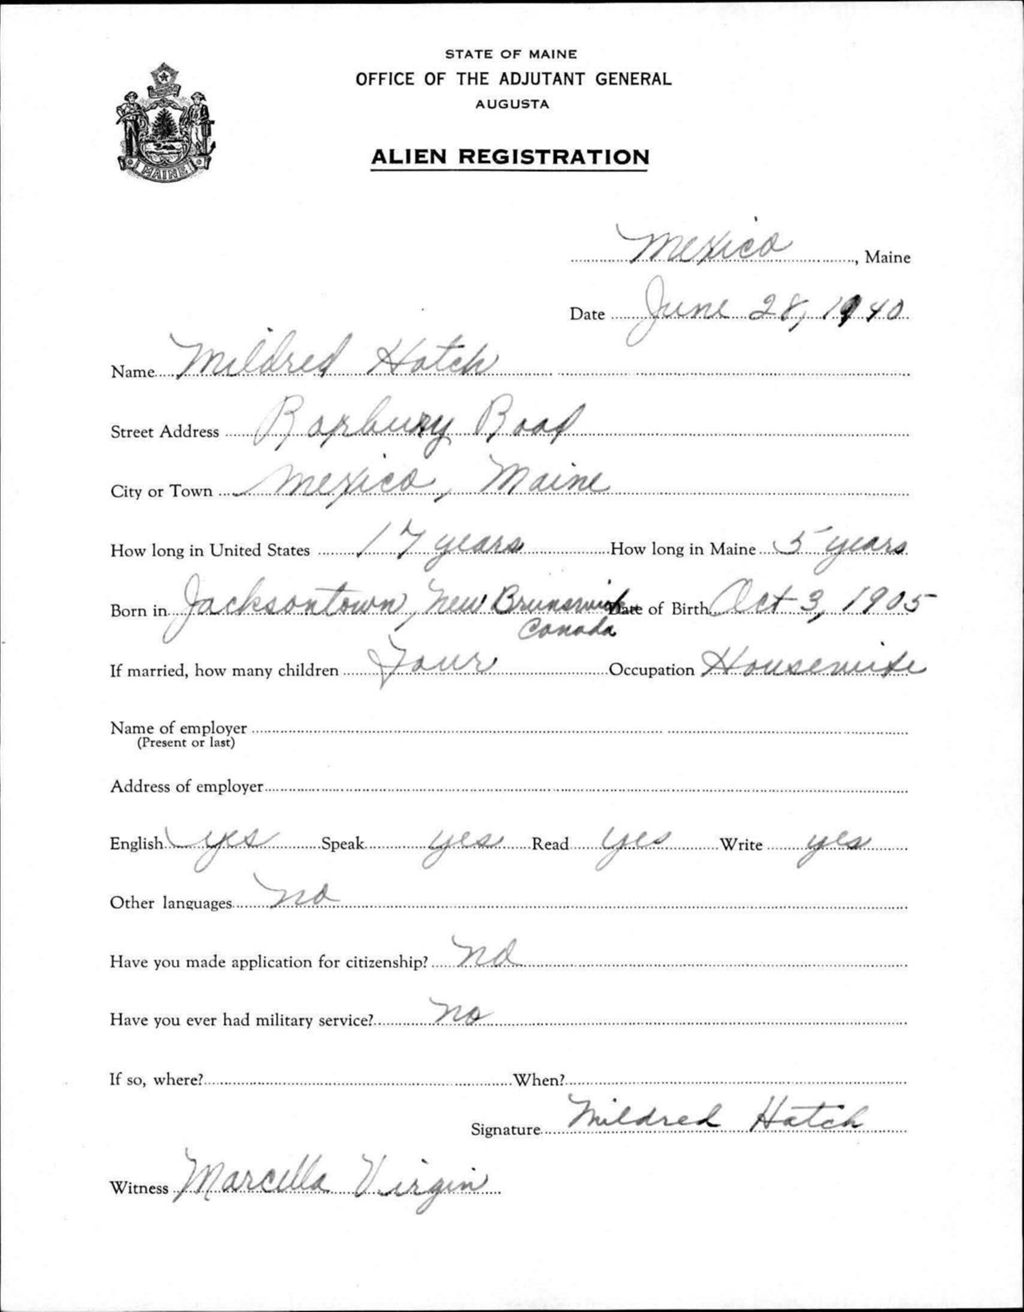 STATE OF MAINE
OFFICE OF THE ADJUTANT GENERAL
AUGUSTA
ALIEN REGISTRATION
MAINE
Mexico, Maine
Date June 28, 1940
Name Mildred Hatch
Street Address Roxbury Road
City or Town Mexico, Maine
How long in United States 17 years How long in Maine 5 years
Born in Jacksontown, New Brunswick Date of Birth Oct 3, 1905
Canada
If married, how many children Four Occupation Housewife
Name of employer
(Present or last)
Address of employer
English yes Speak yes Read yes Write yes
Other languages no
Have you made application for citizenship? no
Have you ever had military service? no
If so, where? When?
Signature Mildred Hatch
Witness Marcella Virgin